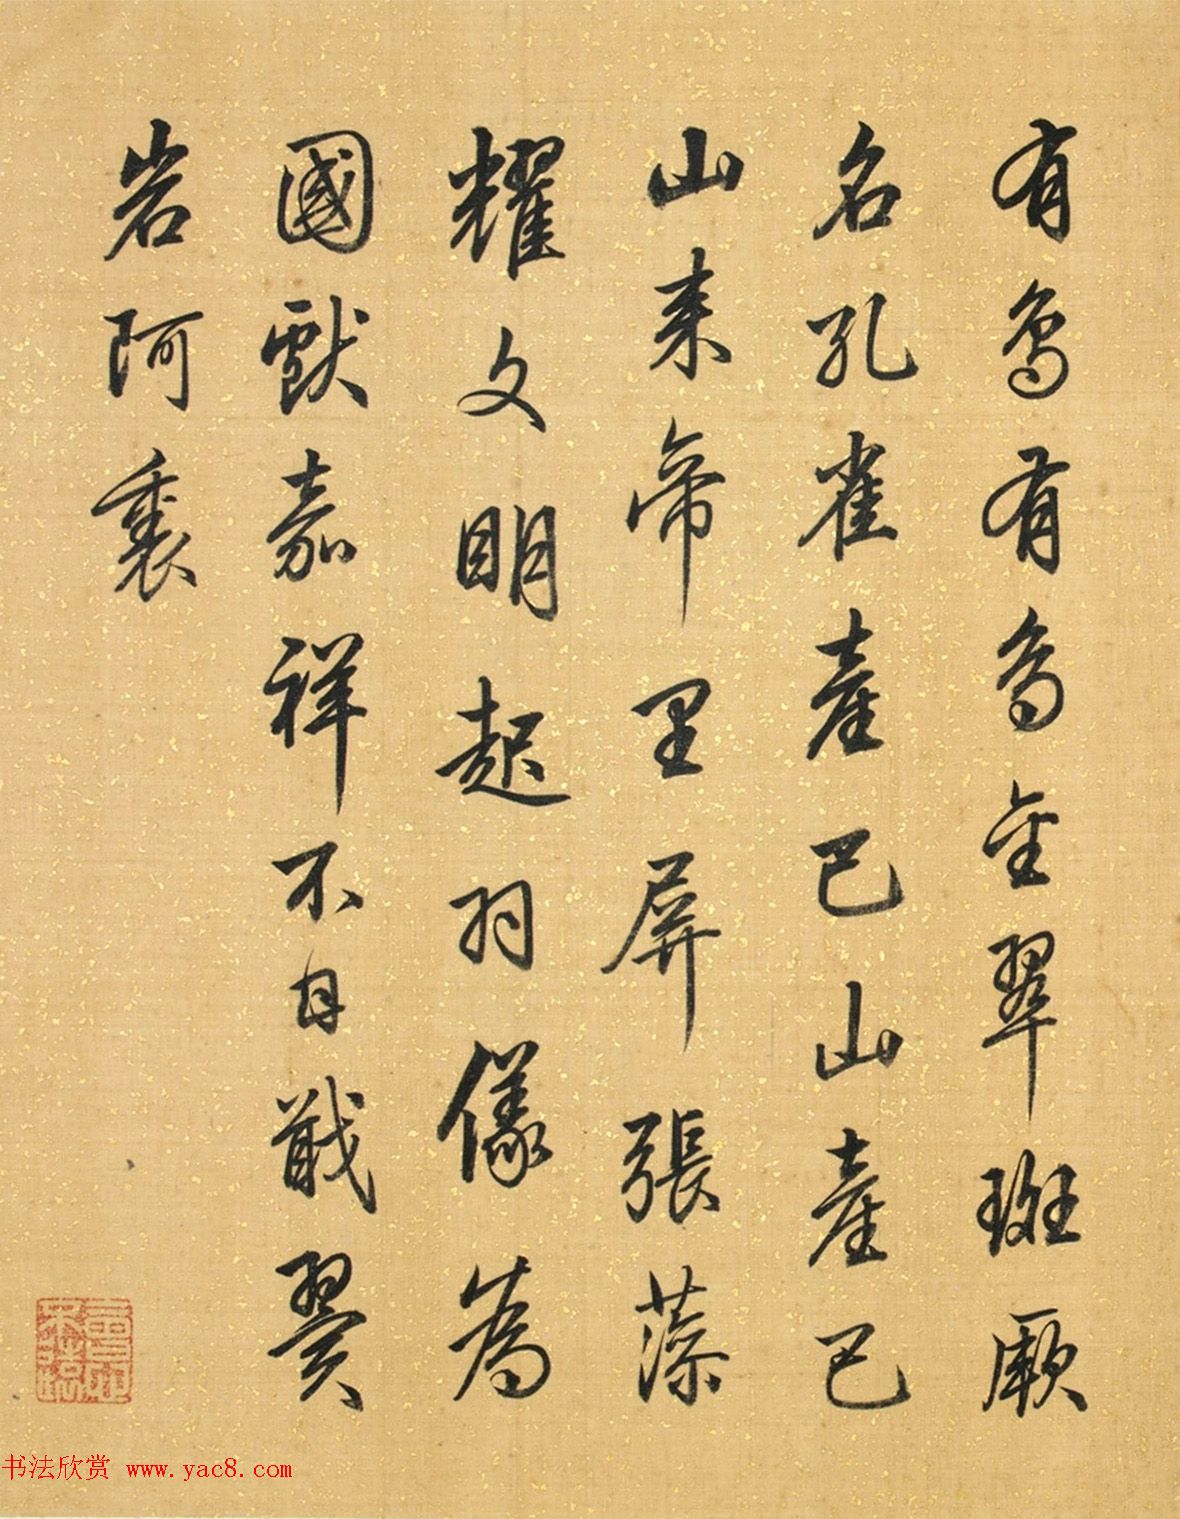 有鳥有鳥金翠斑厥
名孔雀產巴山產巴
山来帝里屏張藻
耀文明起羽儀為
國獻嘉祥不自戢翼
岩阿裏
书法欣赏 www.yac8.com